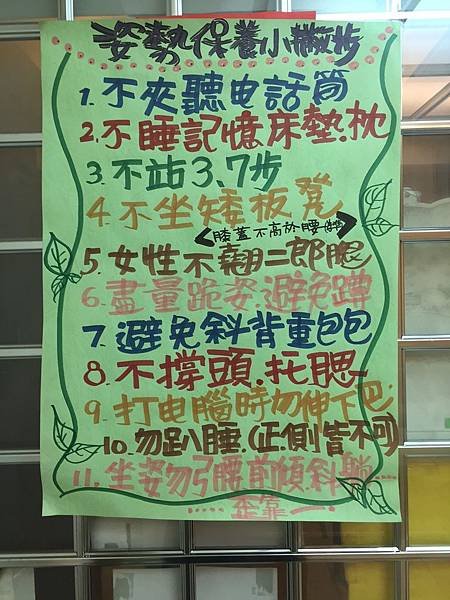 姿勢保養小撇步
1. 不夾聽电話筒
2. 不睡記憶床墊.枕
3. 不站3、7步
4. 不坐矮板凳
<膝蓋不高於腰
5. 女性不翹二郎腿
6. 盡量跪姿.避免蹲
7. 避免斜背重包包
8. 不撐頭.托腮
9. 打电腦時勿伸下巴
10. 勿趴睡.(正側皆不可)
11. 坐姿勿弓腰前傾斜躺…
……歪靠……